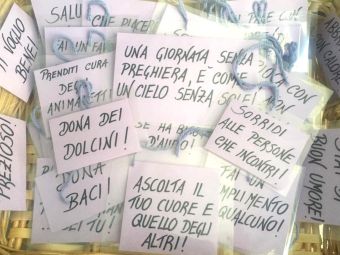 SALU
CHE PIACE
TI VOGLIO
BENE!
FAI UN FA
PRENDITI CURA
DEGLI
ANIMALETTI
UNA GIORNATA SENZA
PREGHIERA, E COME
UN CIELO SENZA
GIOCA CON
NON
PREZIOSO!
DONA DEI
DOLCINI!
SE HA BI
D'AIUTO
SORRIDI
ALLE PERSONE
CHE INCONTRI!
BUON UMORE!
DONA
BACI!
ASCOLTA IL
TUO CUORE E
QUELLO DEGLI
ALTRI!
FAI UN
COMPLIMENTO
QUALCUNO!
SEI TU!